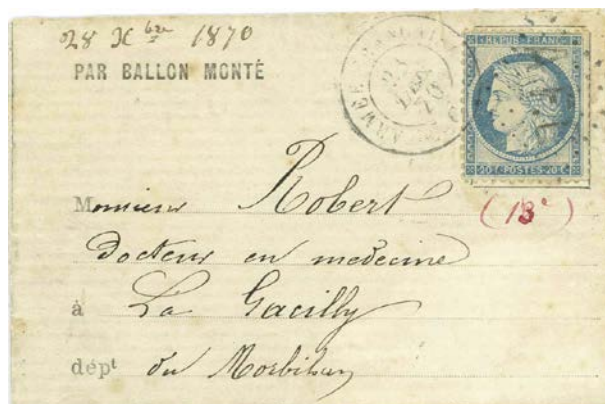 28 Xbre 1870
PAR BALLON MONTÉ
ARMÉE FRANÇAISE
REPUB. FRANC.
20 C. POSTES 20 C.
(13e)
Monsieur Robert
Docteur en medecine
à La Gacilly
dépt du Morbihan